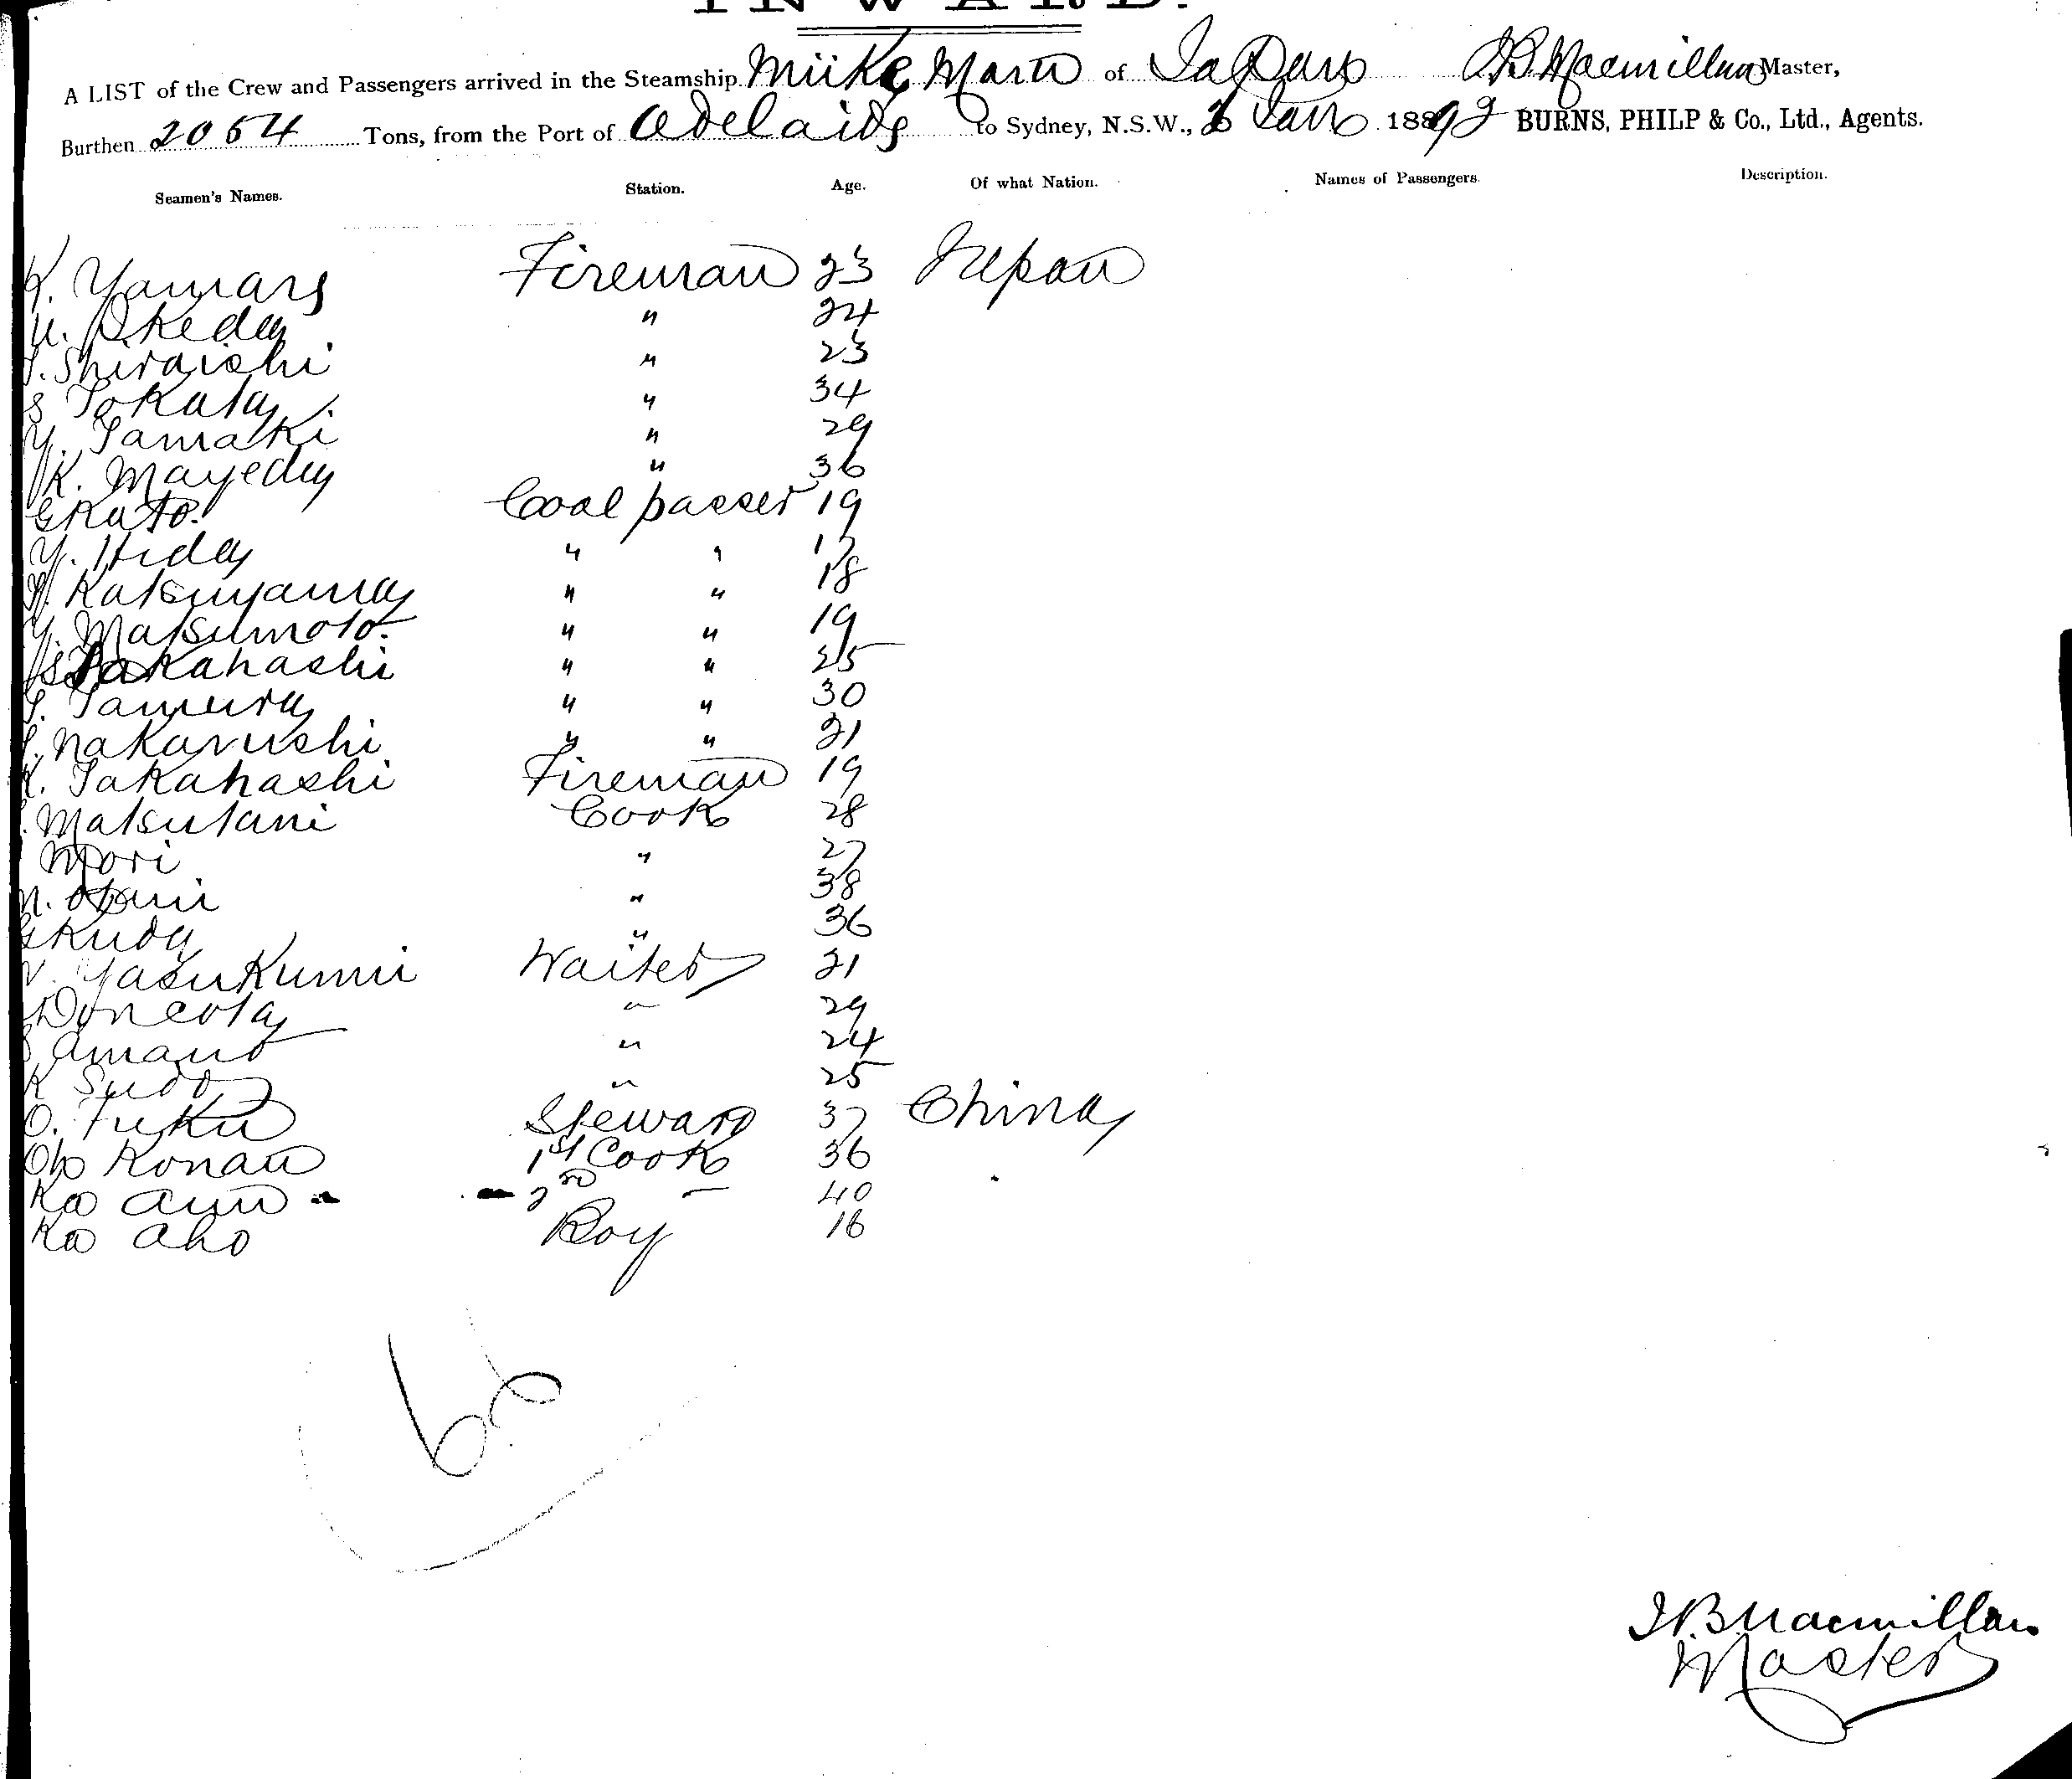 INWARD.
A LIST of the Crew and Passengers arrived in the Steamship Miike Maru of Japan J.B. Macmillan Master,
Burthen 2054 Tons, from the Port of Adelaide to Sydney, N.S.W., Jan 1889 BURNS, PHILP & Co., Ltd., Agents.
Seamen's Names. Station. Age. Of what Nation. Names of Passengers. Description.
K. Fireman 23 Japan
Ikeda " 24
Shiraishi " 23
S Takata " 34
Y. Tamaki " 29
K. Mayeda " 36
G Kato Coal passer 19
Y. Hida " "
Katsuyama " " 18
Y. Matsumoto " " 19
Takahashi " " 25
Tamura " " 30
" " 21
K. Takahashi Fireman 19
Matsutani Cook 28
Mori " 27
Otani " 38
G Kudo " 36
Waiter 21
" 29
Amano " 24
K Sudo " 25
O. Fuku Steward 37 China
Oh Konau 1st Cook 36
Ka Aun 2nd – 40
Ka Aho Boy 16
66
J.B. Macmillan
Master